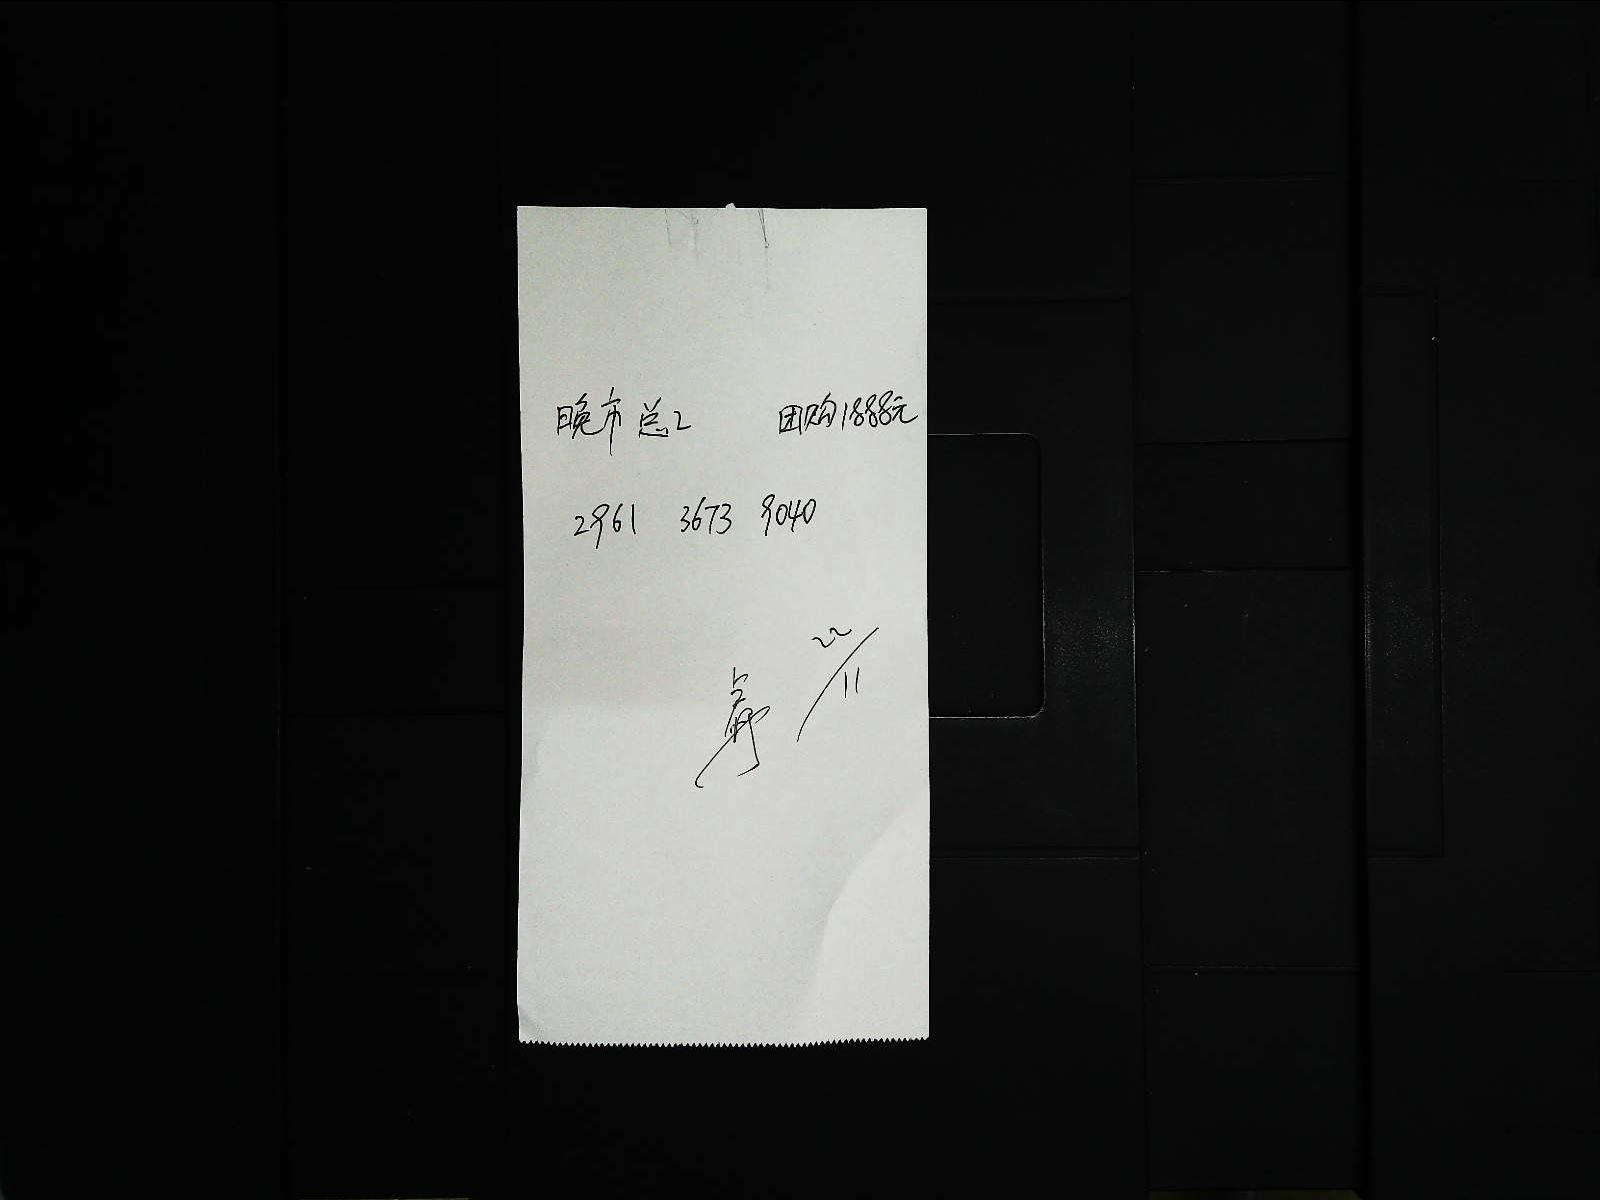 晚市 总2 团购1888元
2961 3673 9040
22/11